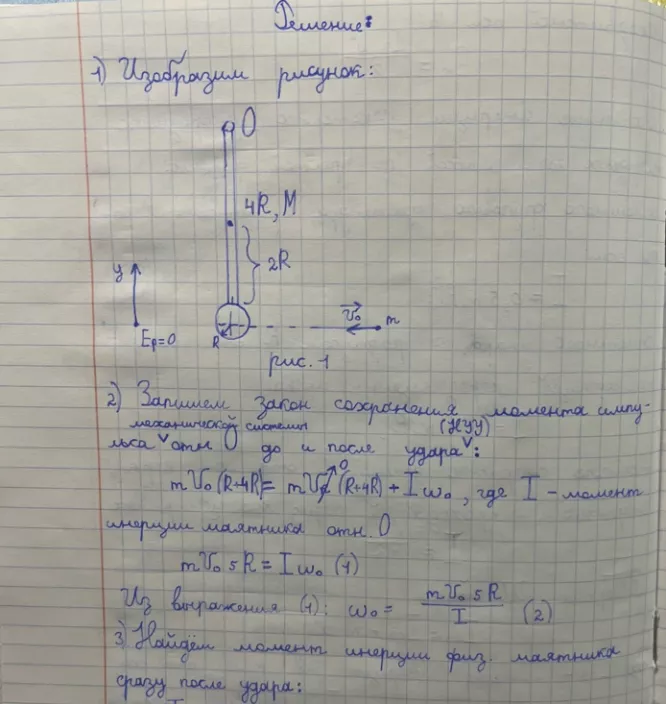 Решение:
1) Изобразим рисунок:
O
4R, M
2R
y
Eₚ=0
R
v₀
m
рис. 1
2) Запишем закон сохранения момента импу-
механической системы (НУУ)
льса ᵛ отн O до и после удара ᵛ:
mV₀(R+4R) = mV (R+4R) + Iω₀, где I - момент
0
инерции маятника отн. O
mV₀ 5R = Iω₀ (1)
Из выражения (1): ω₀ = mV₀ 5R / I (2)
3) Найдём момент инерции физ. маятника
сразу после удара: